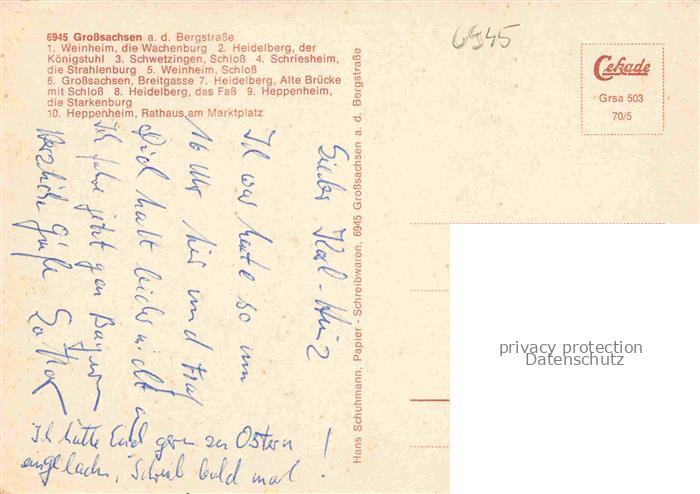 6945 Großsachsen a. d. Bergstraße
1. Weinheim, die Wachenburg 2. Heidelberg, der
Königstuhl 3. Schwetzingen, Schloß 4. Schriesheim,
die Strahlenburg 5. Weinheim, Schloß
6. Großsachsen, Breitgasse 7. Heidelberg, Alte Brücke
mit Schloß 8. Heidelberg, das Faß 9. Heppenheim,
die Starkenburg
10. Heppenheim, Rathaus am Marktplatz
6945
Cekade
Grsa 503
70/5
Hans Schuhmann, Papier - Schreibwaren, 6945 Großsachsen a. d. Bergstraße
Lieber Karl-Heinz
Ich war heute so um
16 Uhr hier und traf
Dich halt leider nicht an
Ich fahre jetzt gen Bayern
Herzliche Grüße Lothar
Ich hätte Euch gern zu Ostern
eingeladen, Schreib bald mal!
privacy protection
Datenschutz